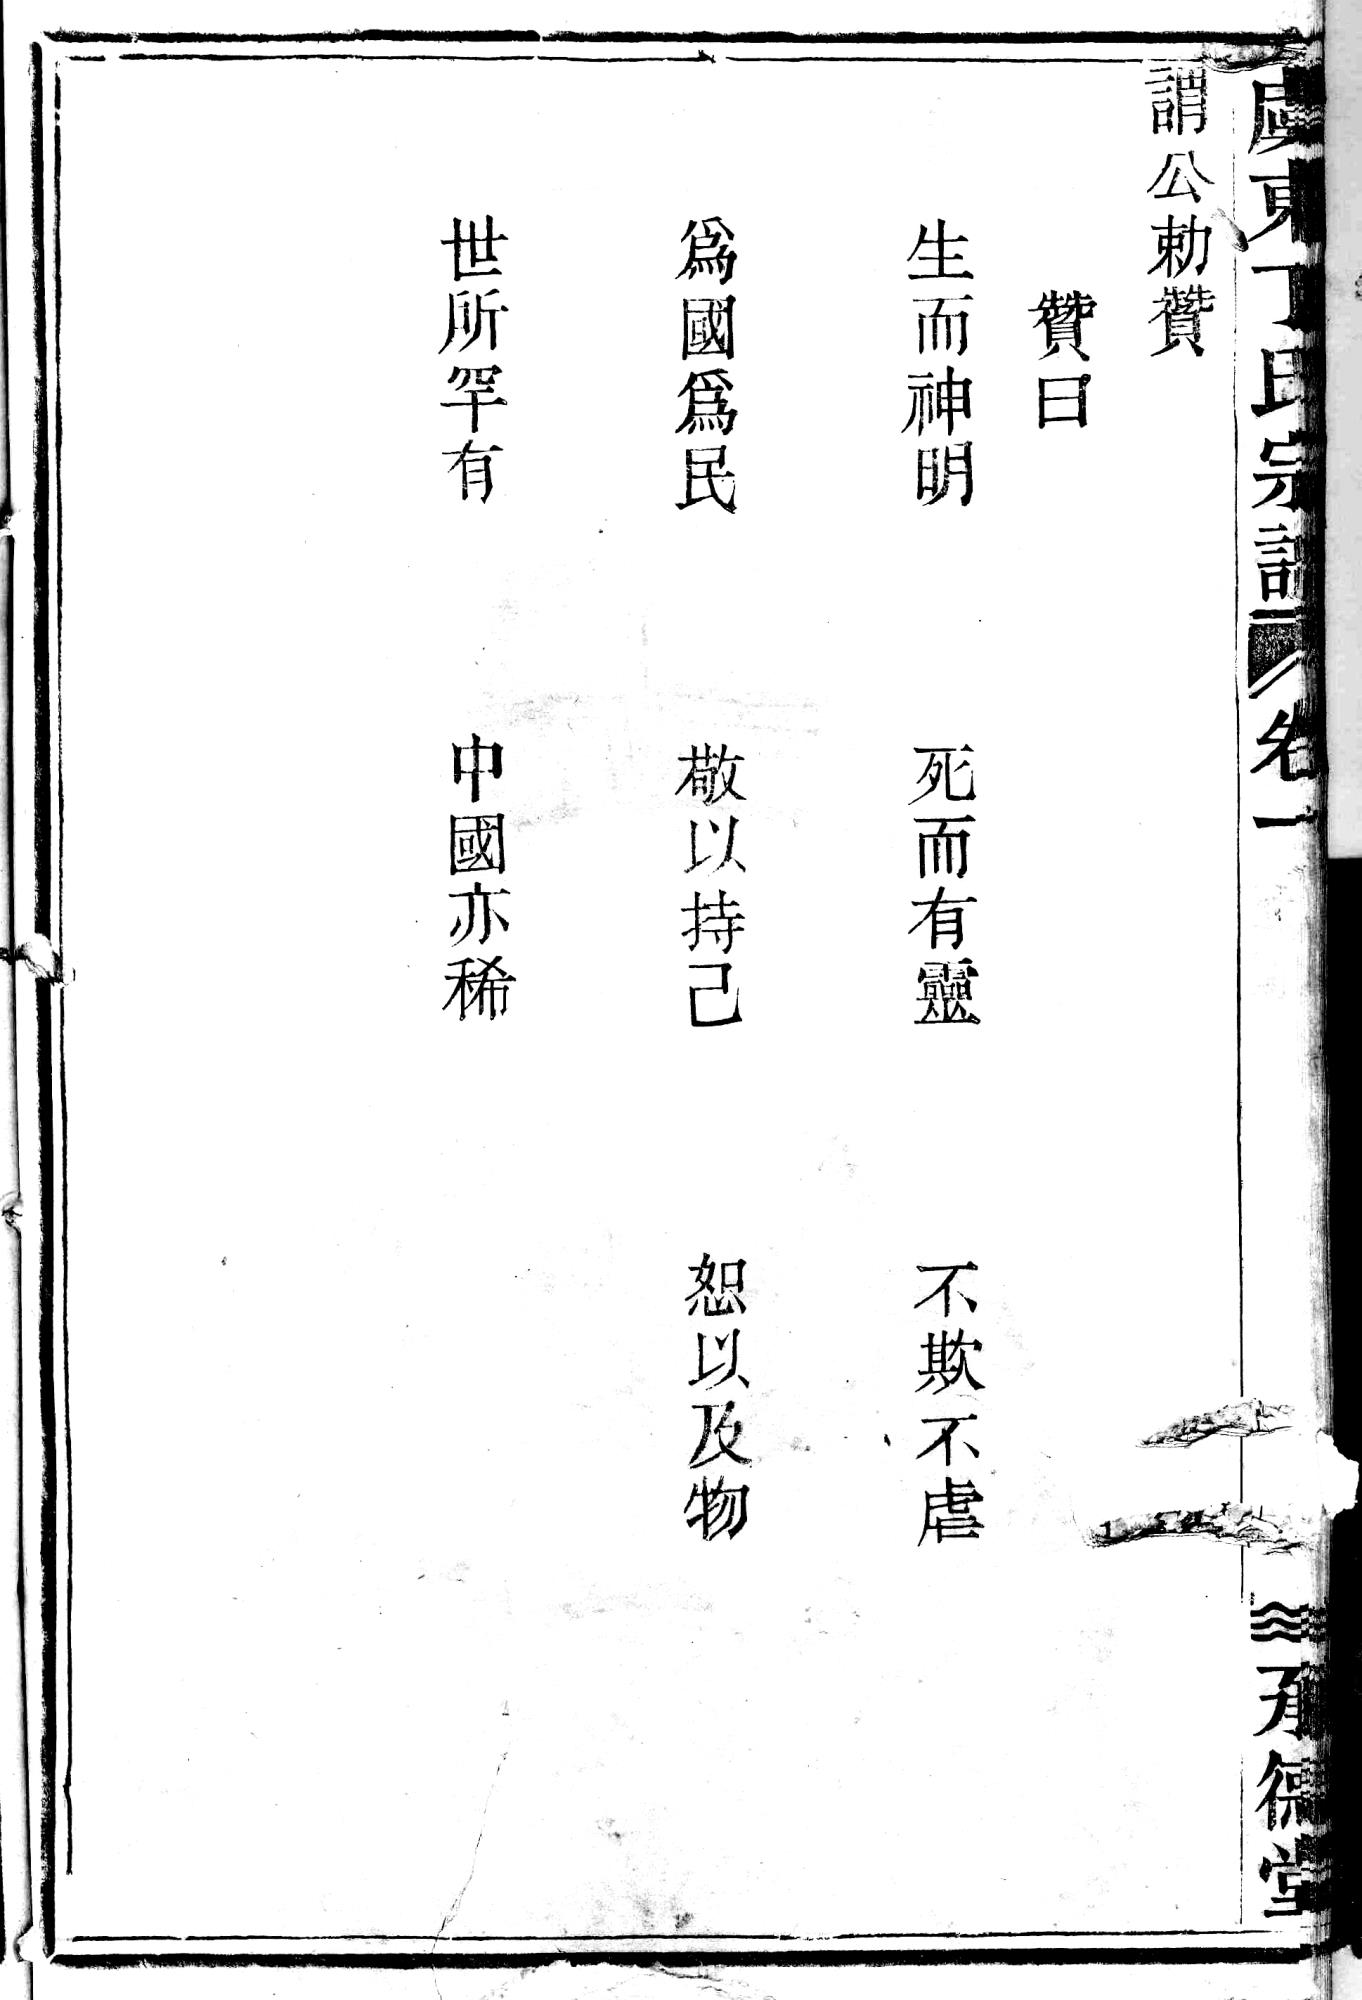 虞東丁氏宗譜 卷一 承德堂
謂公勅贊
贊曰
生而神明 死而有靈 不欺不虐
爲國爲民 敬以持己 恕以及物
世所罕有 中國亦稀